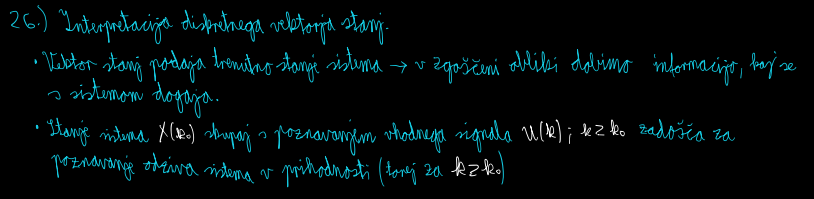 26.) Interpretacija diskretnega vektorja stanj.
• Vektor stanj podaja trenutno stanje sistema → v zgoščeni obliki dobimo informacijo, kaj se
s sistemom dogaja.
• Stanje sistema X(k₀) skupaj s poznavanjem vhodnega signala U(k) ; k≥k₀ zadošča za
poznavanje odziva sistema v prihodnosti (torej za k≥k₀)